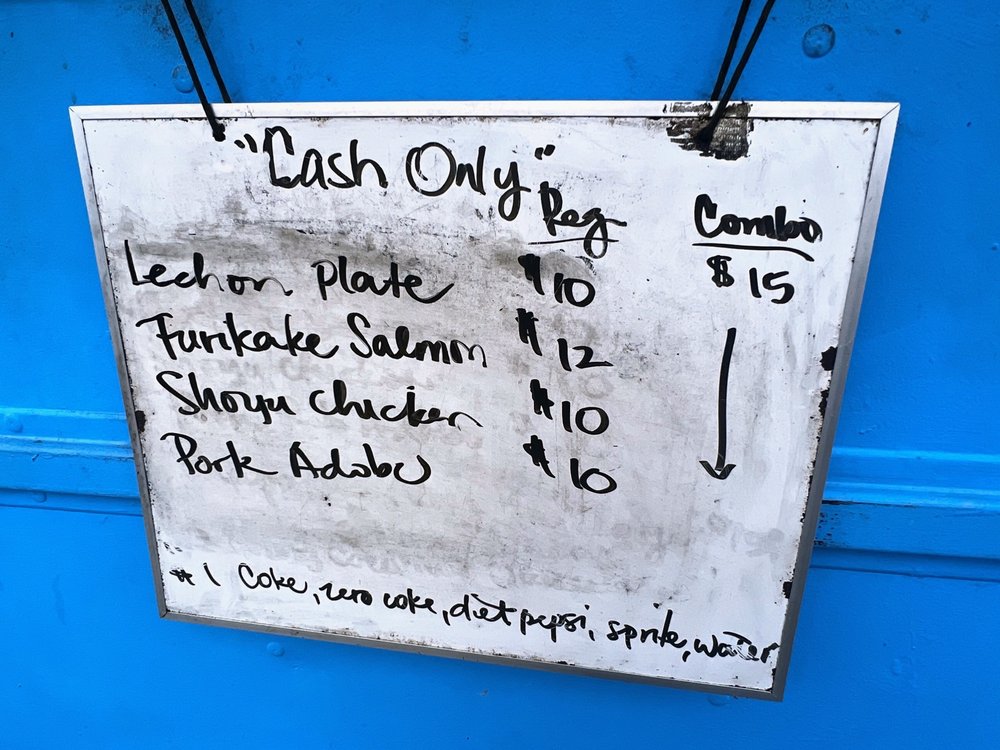 "Cash Only"
Reg Combo
Lechon Plate $10 $15
Furikake Salmon $12
Shoyu chicken $10
Pork Adobo $10
$1 Coke, zero coke, diet pepsi, sprite, water